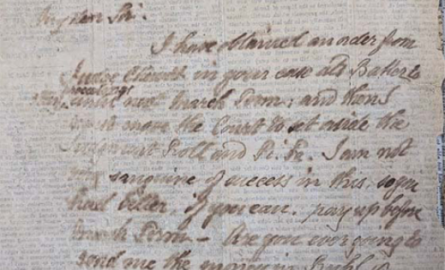 My dear Sir.
I have obtained an order from
Judge Chewett in your case als Batter to
stay proceedings until next March Term, and then I
must move the Court to set aside the
Judgment Roll and Fi. Fa. I am not
very sanguine of success in this, so you
had better, if you can. pay up before
March Term – Are you ever going to
send me the